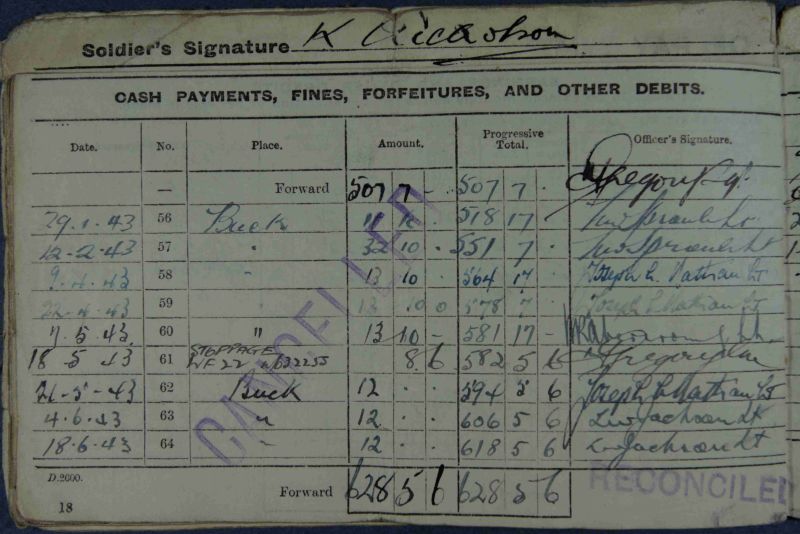 Soldier's Signature K Nicholson
CASH PAYMENTS, FINES, FORFEITURES, AND OTHER DEBITS.
Date. No. Place. Amount. Progressive Total. Officer's Signature.
— Forward 507 7 - 507 7 ·
29.1.43 56 Buck 11 10 · 518 17
12-2-43 57 " 32 10 · 551 7 ·
9.4.43 58 " 13 10 564 17 · Joseph L Nathan Lt
22-4-43 59 13 10 0 578 7 · Joseph L Nathan Lt
7.5.43 60 " 13 10 - 581 17 -
18 5 43 61 STOPPAGE 8 6 582 5 6
21-5-43 62 Buck 12 · · 594 5 6 Joseph L Nathan Lt
4.6.43 63 " 12 · · 606 5 6 Lw Jackson Lt
18.6.43 64 " 12 · · 618 5 6 Lw Jackson Lt
CANCELLED
D.2600. Forward 628 5 6 628 5 6
RECONCILED
18